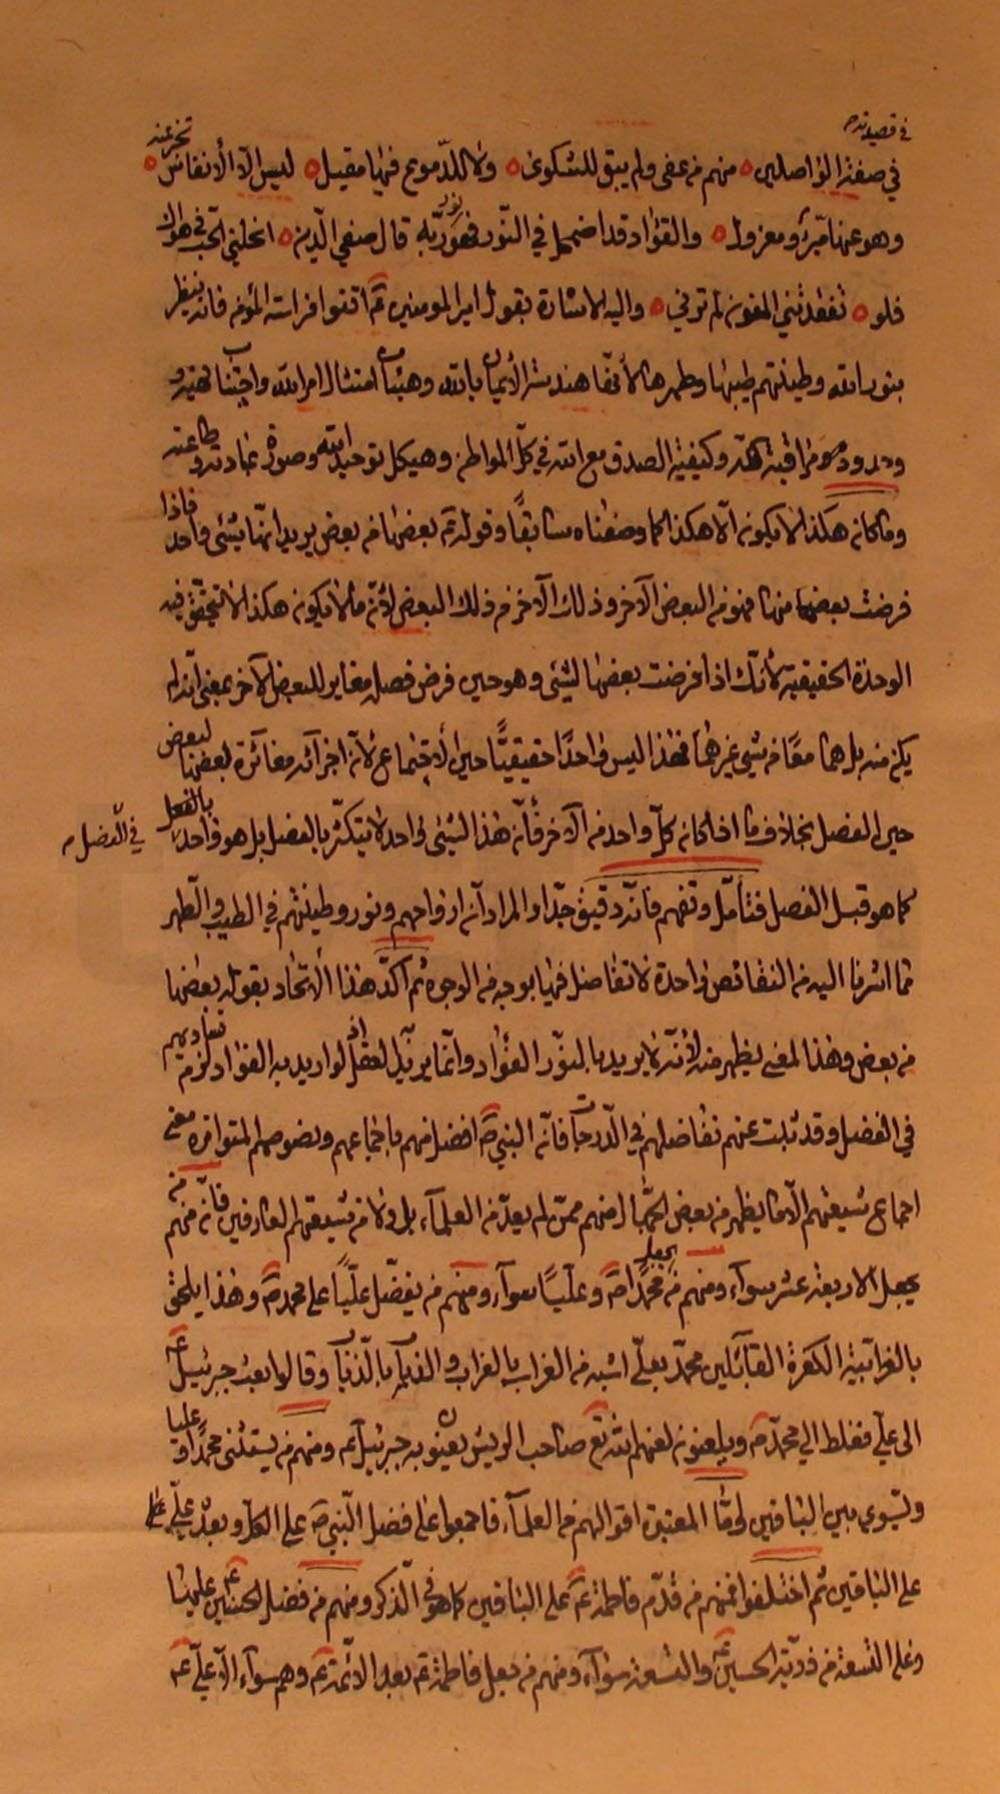 في قصيدته
في صفة الواصلين منهم من عفى ولم يبق للشكوى ولا للدموع فيها مقيل ليس الا الأنفاس تخبر عنه
وهو عنها مبرّؤ معزول والفؤاد قد اضمحل في النّور فهو نور ربّه قال صفي الدّين انحلني الحبّ في هواك
فلو تفقدتني المنون لم ترني واليه الاشارة بقول امير المومنين ع اتقوا فراسة المؤمن فانه ينظر
بنور الله وطينتهم طيبها وطهرها لأنّها هندسة الأيمان بالله وهيئات امتثال امر الله واجتناب نهيه
وحدود مراقبة الله وكيفية الصدق مع الله في كلّ المواطن وهيكل توحيد الله وصورة عبادته وطاعته
وما كان هكذا لا يكون الّا هكذا كما وصفناه سابقاً وقوله ع بعضها من بعض يريد انّها شيئ واحد فاذا
فرضت بعضها منها فهو من البعض الآخر وذلك الآخر من ذلك البعض لأنّ ما لا يكون هكذا لا تتحقق فيه
الوحدة الحقيقية لأنّك اذا فرضت بعضها لشيئ وهو حين فرض فصله مغاير للبعض الآخر بمعنى انه لم
يكن منه بل هما معًا من شيئ غيرهما فهذا ليس واحدًا حقيقيًّا حين الأجتماع لأنّ اجزآئه مغآئرة بعضها لبعض
حين الفصل بخلاف ما اذا كان كلّ واحد من الآخر فأنّ هذا الشيئ واحد لا يتكثّر بالفصل بل هو واحد بالفعل
في الفصل
كما هو قبل الفصل فتأمّل وتفهم فانّه دقيق جدّا والمراد انّ ارواحهم ونورهم وطينتهم في الطيب والطهر
مما اشرنا اليه من النقائص واحدة لا تفاضل فيها بوجه من الوجوه ثم اكّد هذا الأتّحاد بقوله بعضها
من بعض وهذا المعنى يظهر منه لأنّه لا يريد بالنّور الفؤاد وانّما يريد العقل اذ لو اريد به الفؤاد لزم تساويهم
في الفضل وقد ثبت عنهم تفاضلهم في الدّرجات فانّ النبي ص افضل منهم باجماعهم ونصوصهم المتواترة معنى
اجماع شيعتهم الّا ما يظهر من بعض الجهّال منهم ممّن لم يعدّ من العلمآء بل ولا من شيعتهم العارفين فانّ منهم من
يجعل الاربعة عشر سوآء ومنهم من يجعل محمدًا ص وعليًّا سوآء ومنهم من يفضّل عليًّا على محمد ص وهذا يلحق
بالغرابيّة الكفرة القآئلين محمّد بعلّي اشبه من الغراب بالغراب والذباب بالذباب وقالوا بعث جبرئيل ع
الى عليّ فغلط الى محمّد ص ويلعنون لعنهم الله تع صاحب الريش يعنون به جبرئيل ع ومنهم من يستثنى محمدًا وعليا
ويسوي بين الباقين وامّا المعتبرة اقوالهم من العلمآء فاجمعوا على فضل النّبي ص على الكلّ وبعده عليّ ع
على الباقين ثم اختلفوا فمنهم من قدّم فاطمة ع على الباقين كما هو في الذّكر ومنهم من فضل الحسنين ع عليها
وعلى التسعة من ذريّة الحسين ع والتسعة سوآء ومنهم من جعل فاطمة ع بعد الائمّة ع وهم سوآء الّا عليّ ع